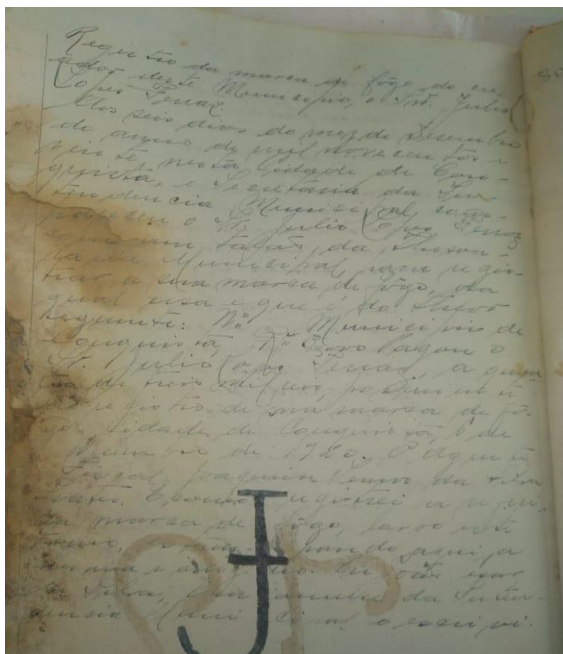 Registro da marca de fogo do cre
ador deste Municipio, o Snr. Julio
Lopes Ferraz
Aos seis dias do mez de Dezembro
do anno de mil novecentos e
vinte, nesta Cidade de Con-
quista, e Secretaria da In-
tendencia Municipal, com-
pareceu o Sr. Julio Lopes Ferraz
com um talão da Thesou-
raria Municipal para regis-
trar a sua marca de fogo, da
qual usa e que é do theor
seguinte: Nº Municipio de
Conquista, Rs Pagou o
Sr. Julio Lopes Ferraz, a quan
tia de tres mil reis, proveniente
do registro de sua marca de fo-
go. Cidade de Conquista, 6 de
Dezembro de 1920. O Agente
Fiscal, Joaquim da Silva
registrei a
marca de fogo, lavro este
aqui a
Eu
Silva, da Inten-
dencia Municipal, o escrevi.
J